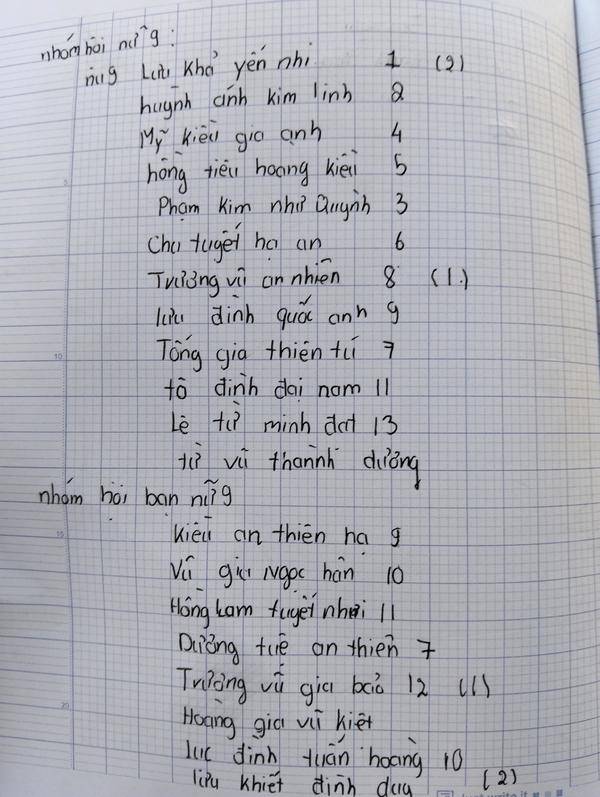 nhóm hội nữ 9 :
nu 9 Lưu Khả yến nhi 1 (2)
huỳnh ánh kim linh 2
Mỹ kiều gia anh 4
hồng tiêu hoang kiều 5
Phạm kim như Quỳnh 3
Chu tuyết hạ an 6
Trương vũ an nhiên 8 (1.)
lưu đình quốc anh 9
Tống gia thiên tú 7
tô đình đại nam 11
Lê từ minh đạt 13
từ vũ thành dương
nhóm hội bạn nữ 9
kiều an thiên hạ 9
Vũ gia Ngọc hân 10
Hồng Lam tuyết nhi 11
Dương tuệ an thiên 7
Trương vũ gia bảo 12 (1)
Hoàng gia vũ kiệt
lục đình tuấn hoàng 10
lưu khiết đình duy (2)